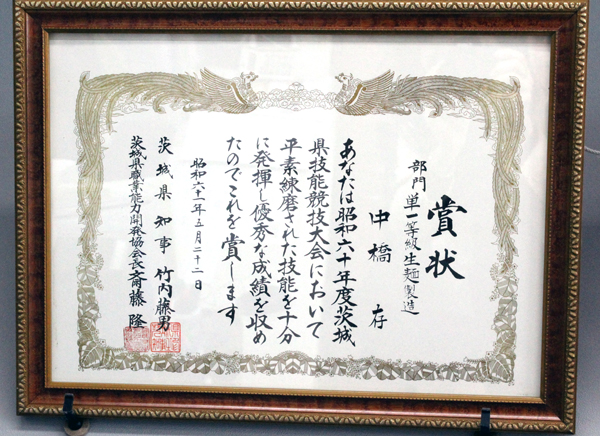 賞状
部門 単一等級生麺製造
中橋 存
あなたは昭和六十年度茨城
県技能競技大会において
平素練磨された技能を十分
に発揮し優秀な成績を収め
たのでこれを賞します
昭和六十一年五月二十二日
茨城県知事 竹内藤男
茨城県職業能力開発協会長 斎藤 隆